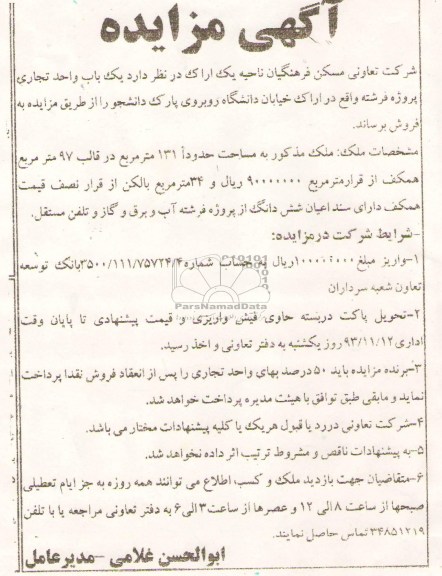 آگهی مزایده
شرکت تعاونی مسکن فرهنگیان ناحیه یک اراک در نظر دارد یک باب واحد تجاری
پروژه فرشته واقع در اراک خیابان دانشگاه روبروی پارک دانشجو را از طریق مزایده به
فروش برساند.
مشخصات ملک: ملک مذکور به مساحت حدوداً ۱۳۱ مترمربع در قالب ۹۷ متر مربع
همکف از قرارمترمربع ۹۰۰۰۰۰۰۰ ریال و ۳۴مترمربع بالکن از قرار نصف قیمت
همکف دارای سند اعیان شش دانگ از پروژه فرشته آب و برق و گاز و تلفن مستقل.
-شرایط شرکت درمزایده:
۱-واریز مبلغ ریال به حساب شماره۳۵۰۰/۱۱۱/۷۵۷۲۴/۴بانک توسعه
تعاون شعبه سرداران
ParsNamadData
۲-تحویل پاکت دربسته حاوی فیش واریزی و قیمت پیشنهادی تا پایان وقت
اداری۹۳/۱۱/۱۲ روز یکشنبه به دفتر تعاونی و اخذ رسید.
۳-برنده مزایده باید ۵۰درصد بهای واحد تجاری را پس از انعقاد فروش نقدا پرداخت
نماید و مابقی طبق توافق با هیئت مدیره پرداخت خواهد شد.
۴-شرکت تعاونی دررد یا قبول هریک یا کلیه پیشنهادات مختار می باشد.
۵-به پیشنهادات ناقص و مشروط ترتیب اثر داده نخواهد شد.
۶-متقاضیان جهت بازدید ملک و کسب اطلاع می توانند همه روزه به جز ایام تعطیلی
صبحها از ساعت ۸ الی ۱۲ و عصرها از ساعت۳الی۶ به دفتر تعاونی مراجعه یا با تلفن
۳۴۸۵۱۲۱۹ تماس حاصل نمایند.
ابوالحسن غلامی -مدیرعامل